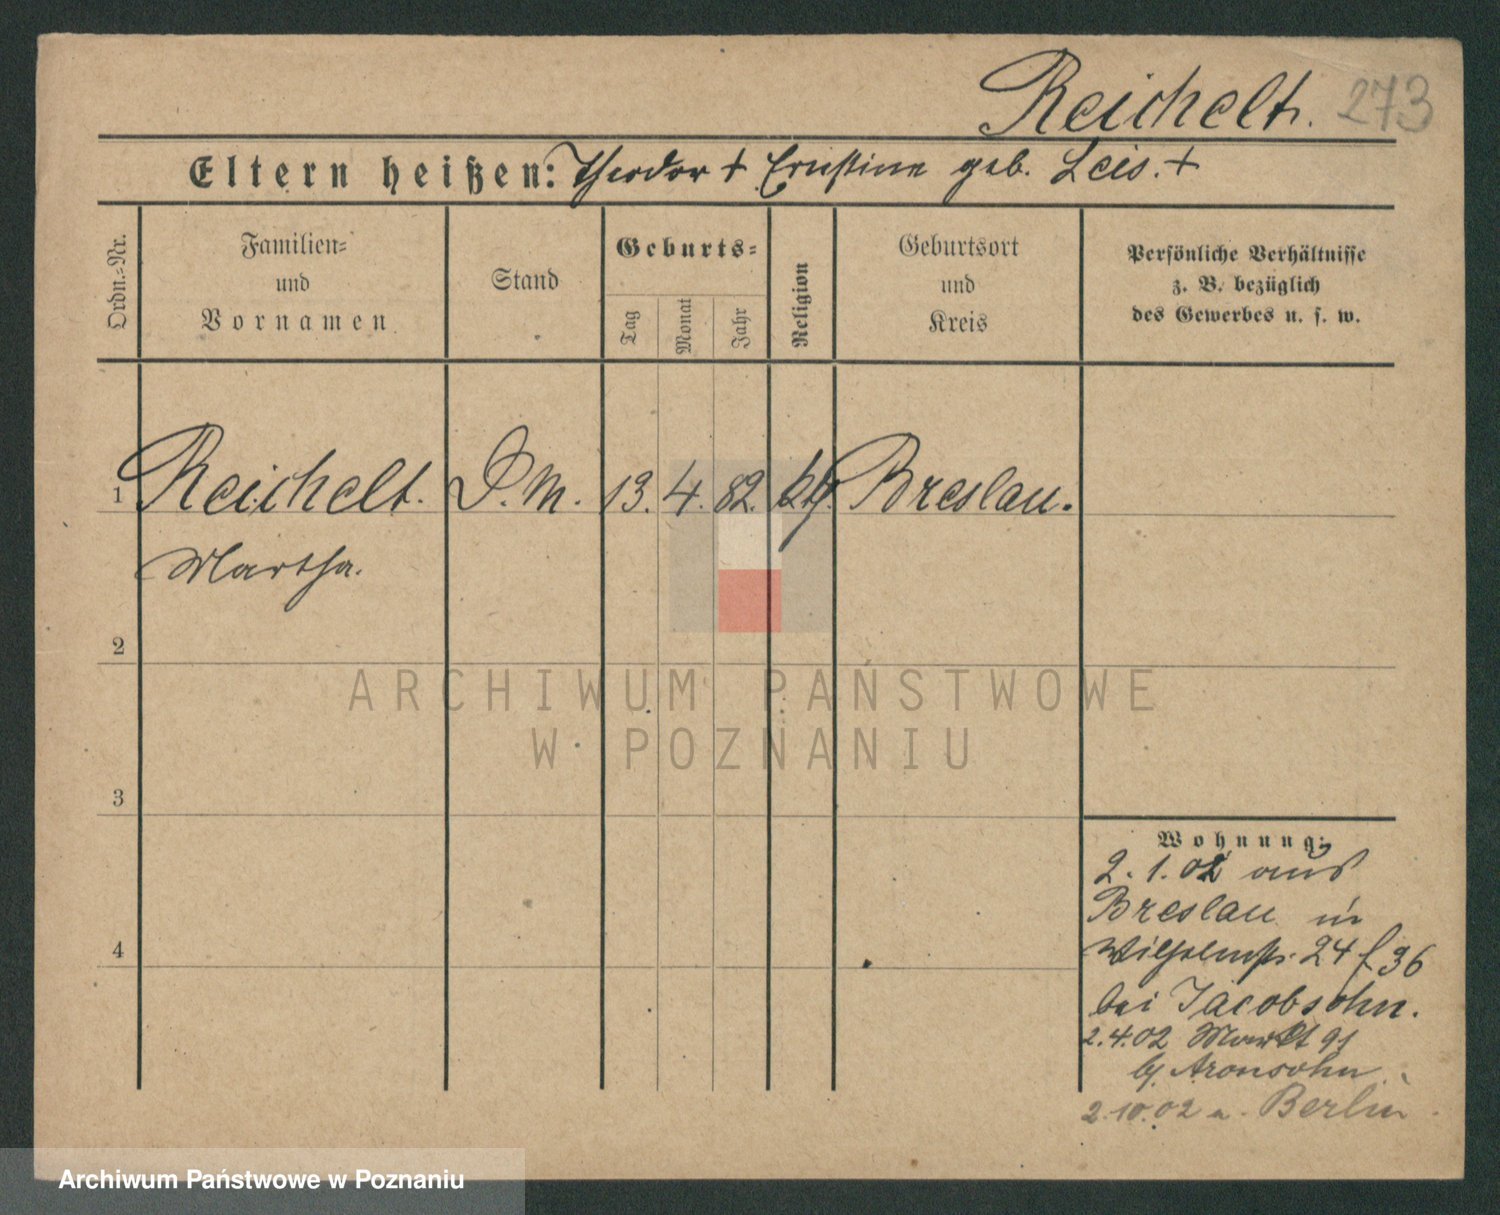 Reichelt. 273
Eltern heißen: Theodor + Ernstine geb. Leis. +
Ordn.-Nr.
Familien-
und
Vornamen
Stand
Geburts-
Tag
Monat
Jahr
Religion
Geburtsort
und
Kreis
Persönliche Verhältnisse
z. B. bezüglich
des Gewerbes u. s. w.
1 Reichelt. D.M. 13. 4. 82. kth. Breslau.
Martha.
2
3
4
ARCHIWUM PAŃSTWOWE
W POZNANIU
Wohnung:
2. 1. 02 aus
Breslau in
Wilhelmstr. 24 f 36
bei Jacobsohn.
2.4.02 Markt 91
bj. Aronsohn.
2.10.02 n. Berlin.
Archiwum Państwowe w Poznaniu